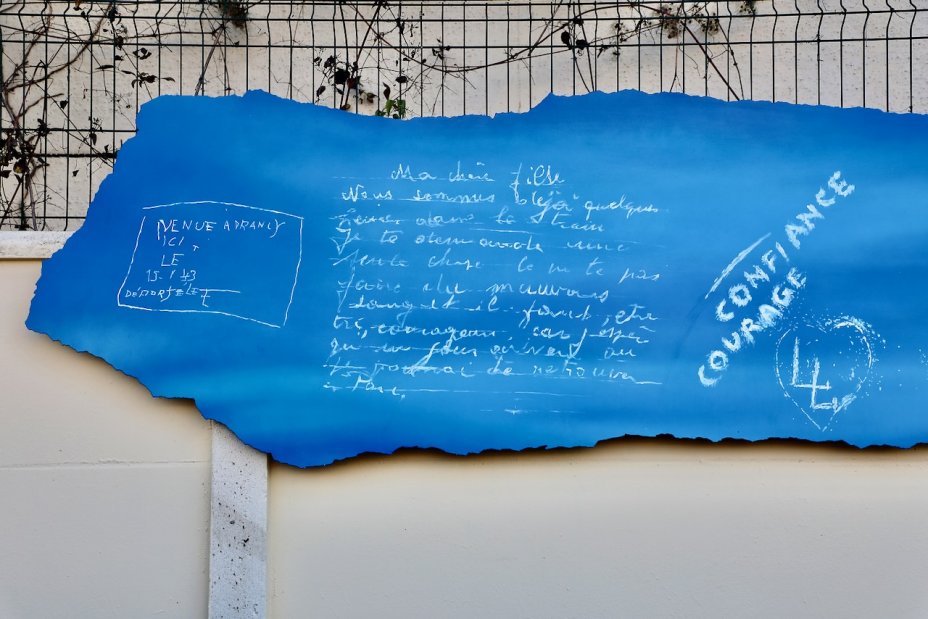 VENUE A DRANCY
ICI
LE
15.1 43
DÉPORTÉ LE
Ma chère fille
Nous sommes déjà quelques
heures dans le train
Je te demande une
seule chose de ne te pas
faire du mauvais
sang et il faut être
très courageux car
qu'un jour arrivera où
de retrouver
CONFIANCE
COURAGE
LL